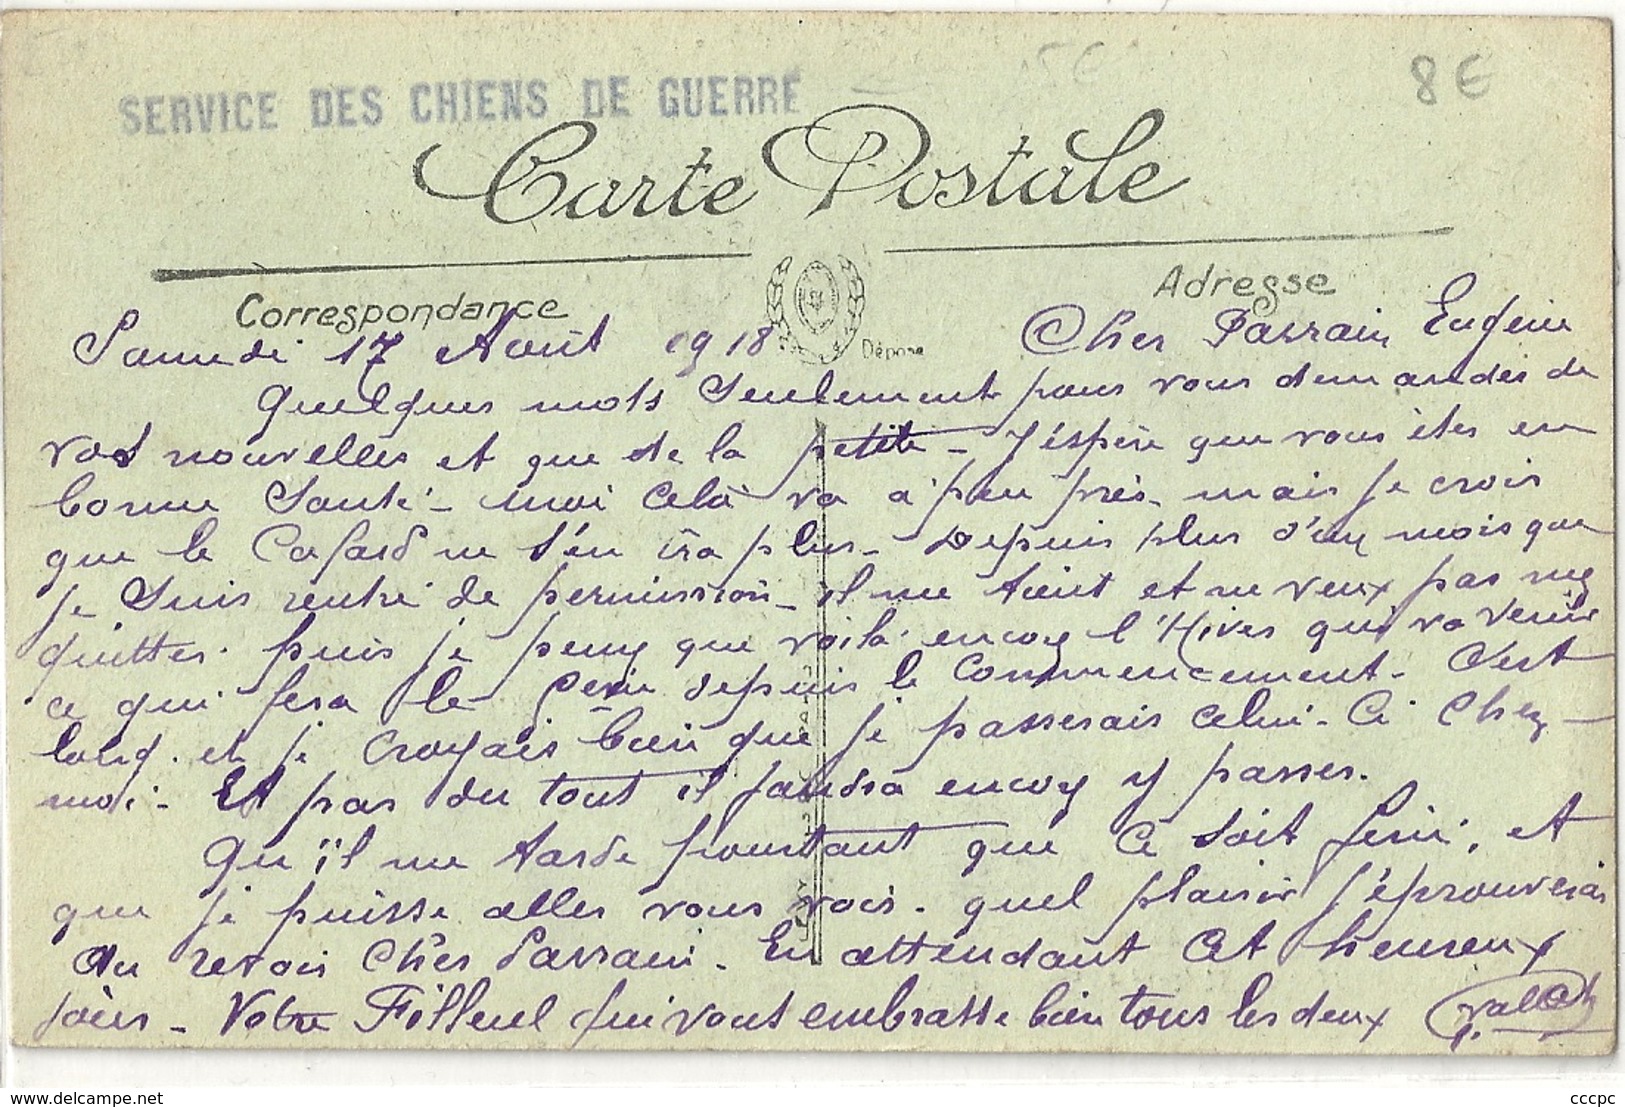 SERVICE DES CHIENS DE GUERRE
8 €
Carte Postale
Correspondance
Adresse
Déposé
Samedi 17 Août 1918
Cher Parrain Eugène
Quelques mots Seulement pour vous demander de
vos nouvelles et que de la petite - J'éspère que vous êtes en
bonne Santé - moi Celà va à peu près - mais je crois
que le Cafard ne s'en ira plus - Depuis plus d'un mois que
je Suis rentré de permission - il me tient et ne veux pas me
quitter. puis je pense que voilà encore l'Hiver qui va venir
ce qui sera le 5eme depuis le Commencement - C'est
long. et je Croyais bien que je passerais celui-Ci Chez -
moi - Et pas du tout il faudra encore y passer.
Qu'il me tarde pourtant que Ce soit fini, et
que je puisse aller vous voir. quel plaisir j'éprouverais
Au revoir Cher Parrain. En attendant Cet heureux
jour - Votre Filleul qui vous embrasse bien tous les deux
delcampe.net
cccpc